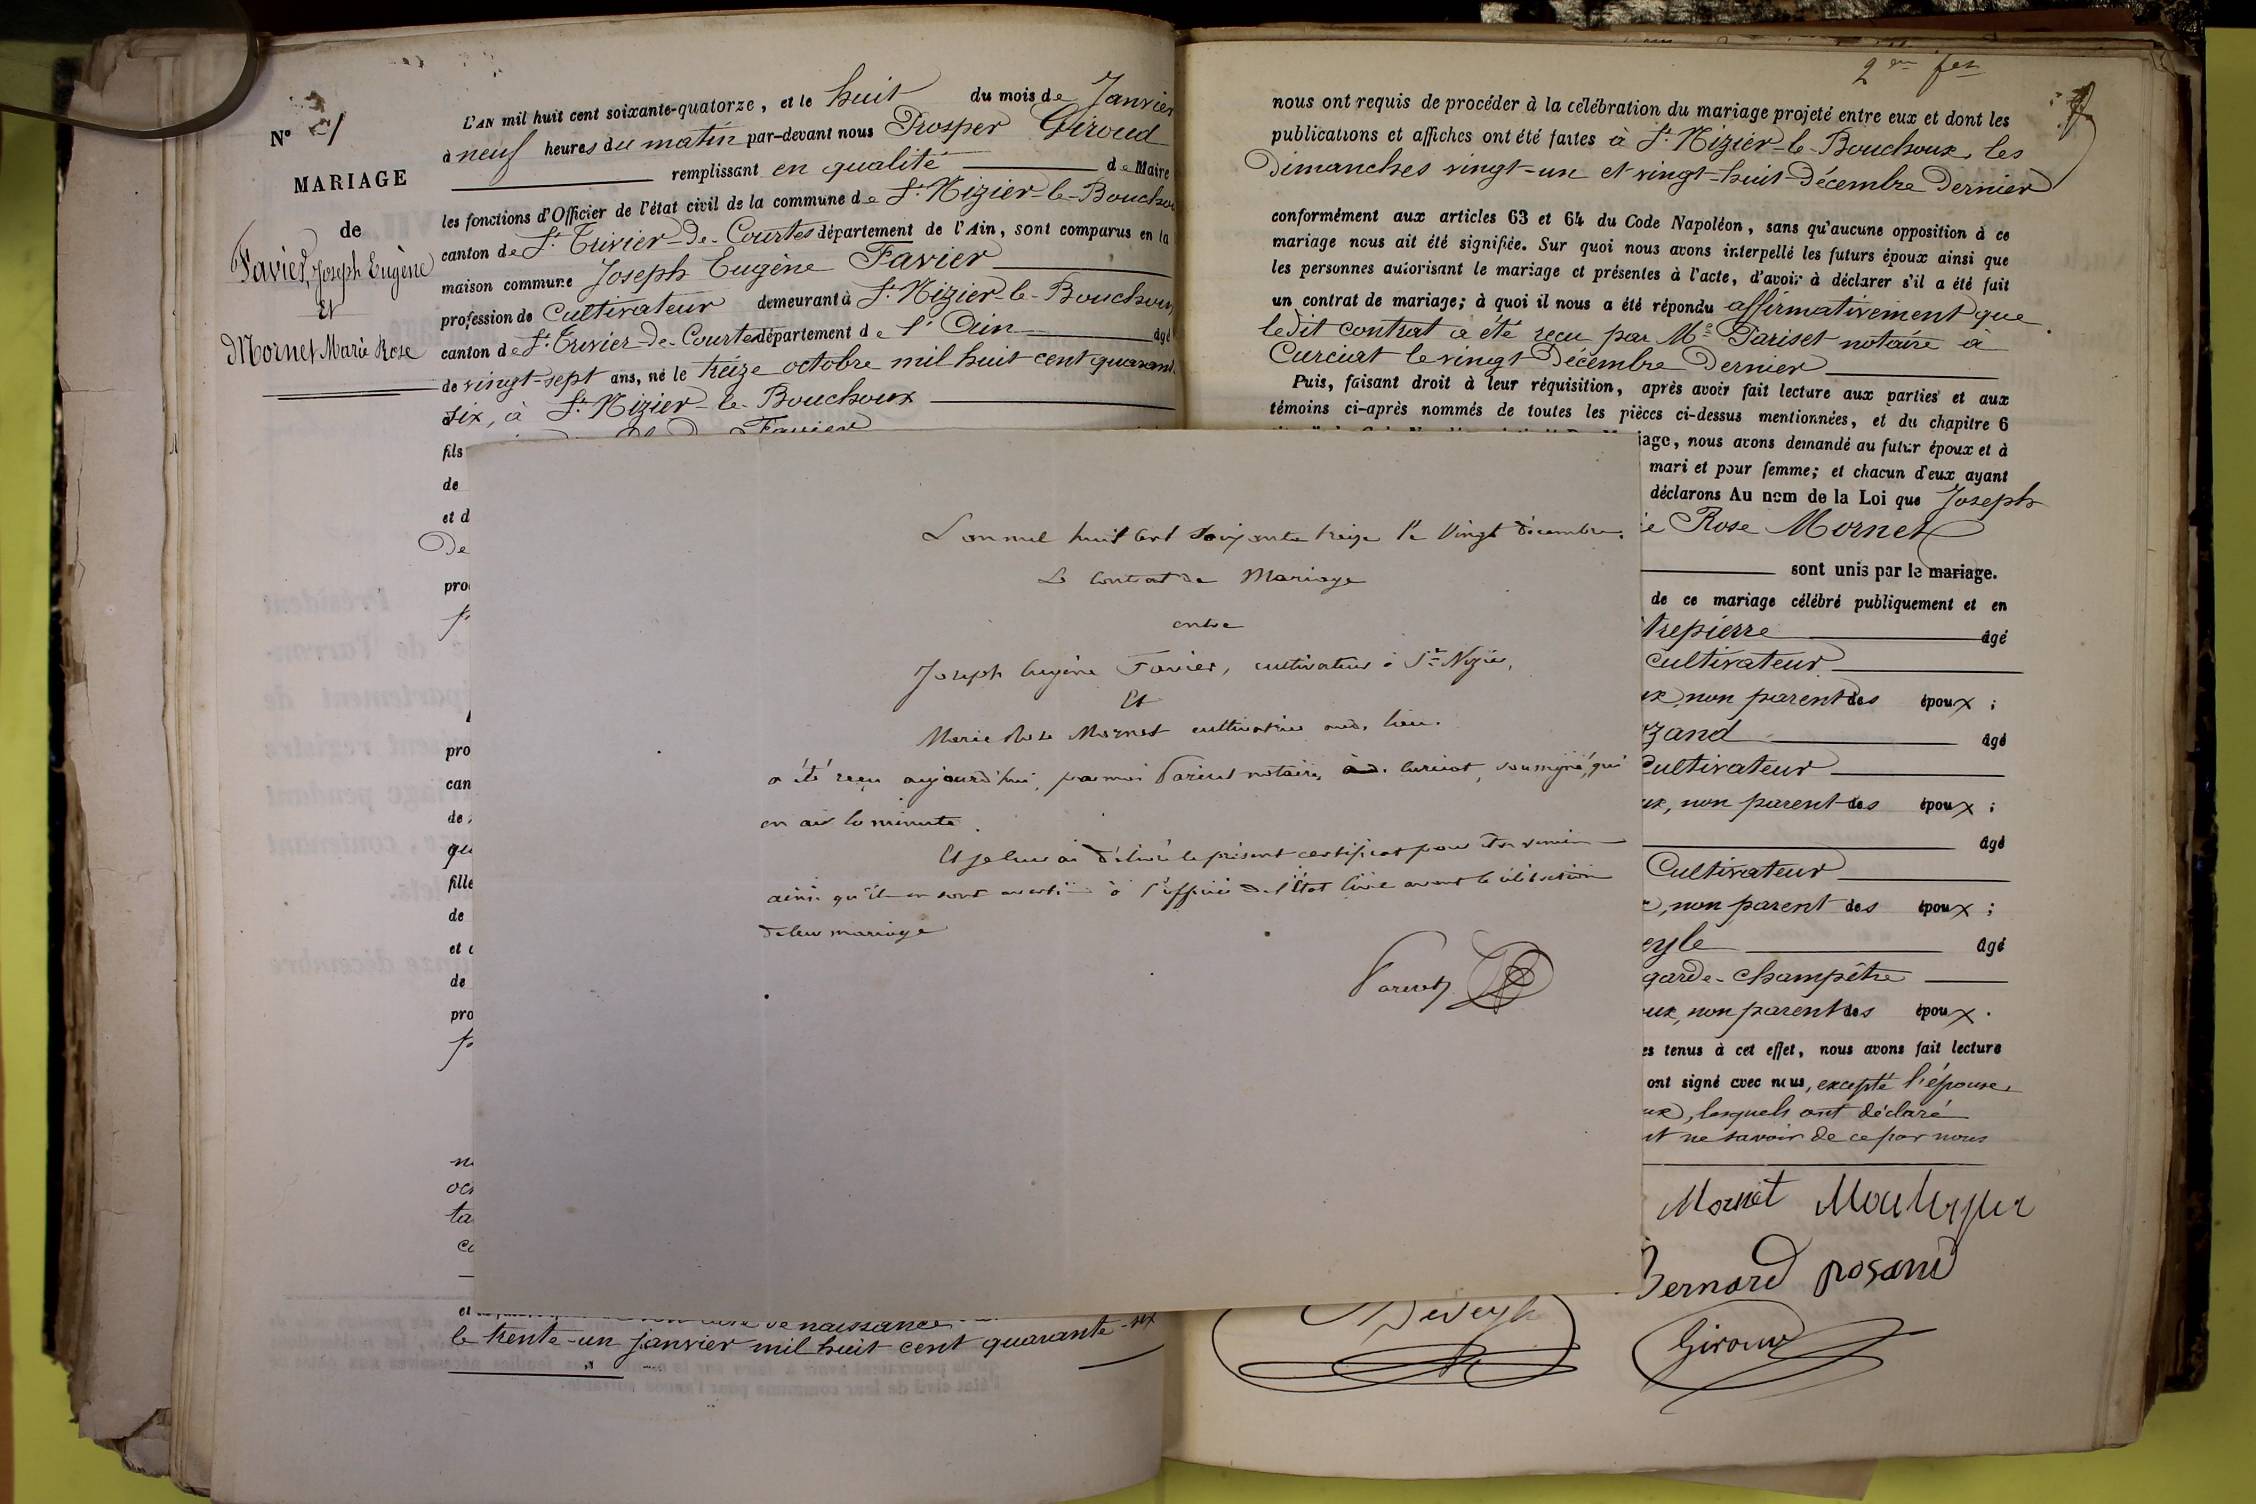 N° 1
MARIAGE
de
Favier, Joseph Eugène
Et
Mornet Marie Rose
L'AN mil huit cent soixante-quatorze, et le huit du mois de Janvier
à neuf heures du matin par-devant nous Prosper Giroud
remplissant en qualité de Maire
les fonctions d'Officier de l'état civil de la commune de St Nizier-le-Bouchou
canton de St Trivier-de-Courtes département de l'Ain, sont comparus en la
maison commune Joseph Eugène Favier
profession de Cultivateur demeurant à St Nizier-le-Bouchoux
canton de St Trivier-de-Courtes département de l'Ain âgé
de vingt-sept ans, né le treize octobre mil huit cent quarant
six, à St Nizier-le-Bouchoux
fils Favier
de
et d
De
pro
p
pro
can
de
qu
fille
de
et
de
pro
p
n
oc
ta
c
et naissance
le trente-un janvier mil huit cent quarante-six
L'an mil huit cent soixante treize le vingt décembre.
Le Contrat de Mariage
entre
Joseph Eugène Favier, cultivateur à St Nizier,
Et
Marie Rose Mornet cultivatrice aud. lieu.
a été reçu aujourd'hui, par moi Pariset notaire à Curciat, soussigné, qui
en ai la minute.
Et je leur ai délivré le présent certificat pour être remis
ainsi qu'ils en sont avertis à l'officier de l'Etat Civil avant la célébration
de leur mariage
Pariset
2me fet
nous ont requis de procéder à la célébration du mariage projeté entre eux et dont les
publications et affiches ont été faites à St Nizier-le-Bouchoux, les
Dimanches vingt-un et vingt-huit Décembre Dernier
conformément aux articles 63 et 64 du Code Napoléon, sans qu'aucune opposition à ce
mariage nous ait été signifiée. Sur quoi nous avons interpellé les futurs époux ainsi que
les personnes autorisant le mariage et présentes à l'acte, d'avoir à déclarer s'il a été fait
un contrat de mariage; à quoi il nous a été répondu affirmativement que
ledit contrat a été reçu par Me Pariset notaire à
Curciat le vingt Décembre Dernier
Puis, faisant droit à leur réquisition, après avoir fait lecture aux parties et aux
témoins ci-après nommés de toutes les pièces ci-dessus mentionnées, et du chapitre 6
iage, nous avons demandé au futur époux et à
mari et pour femme; et chacun d'eux ayant
déclarons Au nom de la Loi que Joseph
ie Rose Mornet
sont unis par le mariage.
de ce mariage célébré publiquement et en
trepierre âgé
cultivateur
ux non parent des époux ;
zand âgé
Cultivateur
ux, non parent des époux ;
âgé
Cultivateur
, non parent des époux ;
eyle âgé
garde-champêtre
oux, non parent des époux .
es tenus à cet effet, nous avons fait lecture
ont signé avec nous, excepté l'épouse,
ux), lesquels ont déclaré
nt ne savoir de ce par nous
Mornet
Bernard
Deveyle Giroud